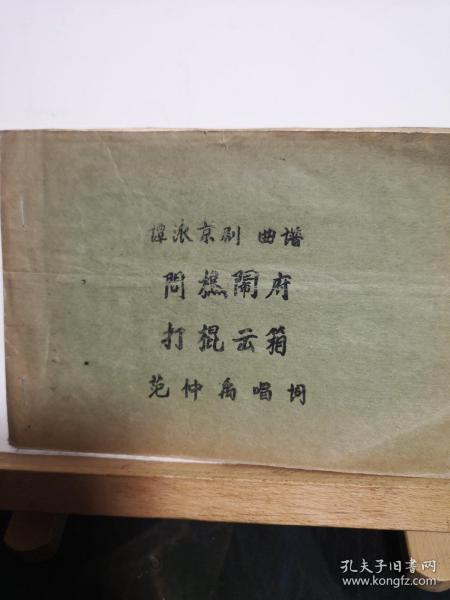 譚派京剧 曲谱
問樵鬧府
打棍云箱
范仲禹唱词
孔夫子旧书网
www.kongfz.com